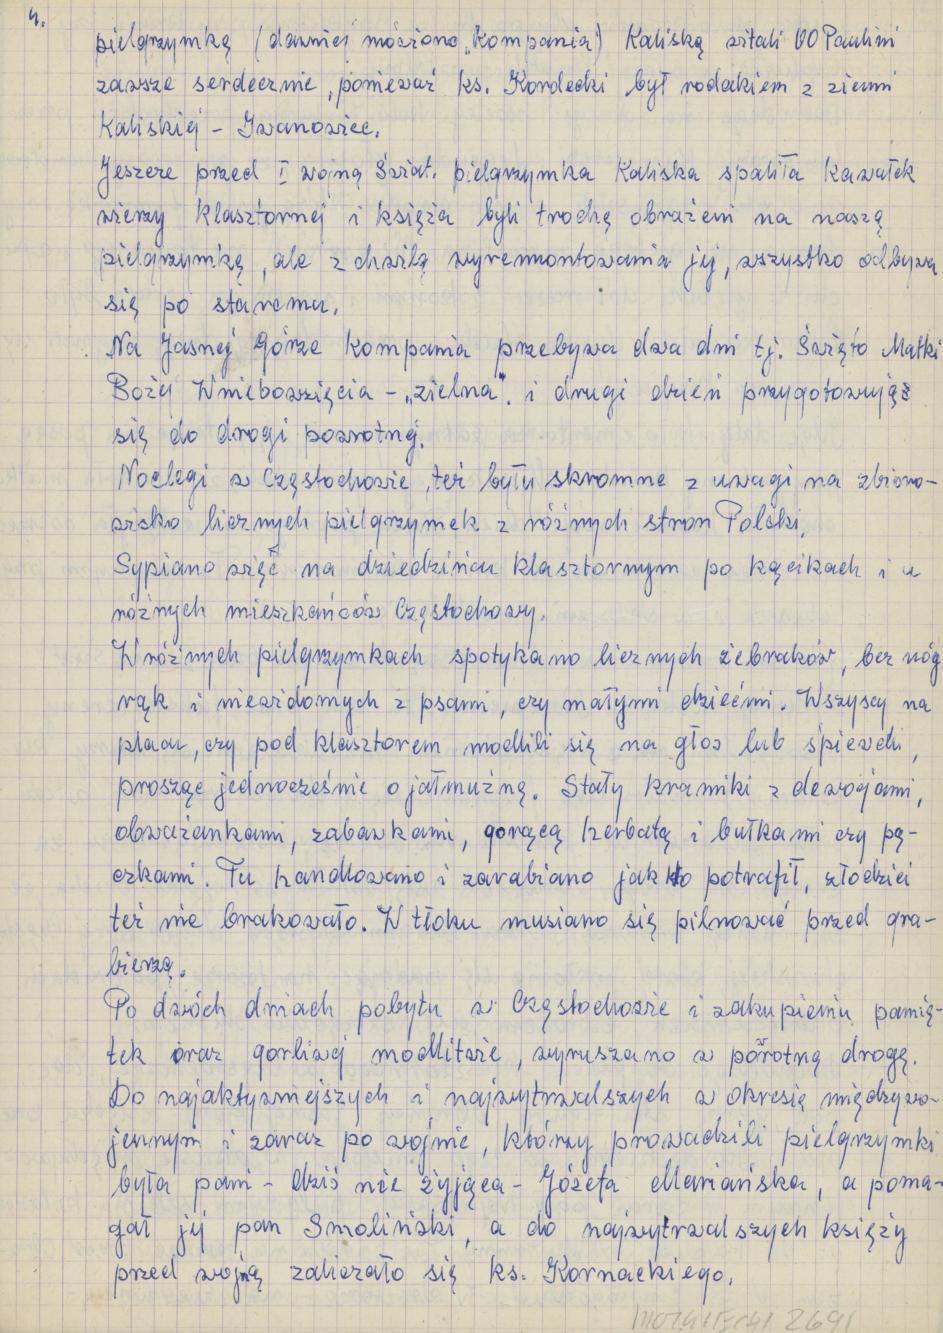 4.
pielgrzymkę (dawniej mówiono „Kompania") Kaliską witali OO Paulini
zawsze serdecznie, ponieważ ks. Kordecki był rodakiem z ziemi
Kaliskiej – Iwanowiec.
Jeszcze przed I wojną Świat. pielgrzymka Kaliska spaliła kawałek
wieży klasztornej i księża byli trochę obrażeni na naszą
pielgrzymkę, ale z chwilą wyremontowania jej, wszystko odbywa
się po staremu.
Na Jasnej Górze kompania przebywa dwa dni tj. Święto Matki
Bożej Wniebowzięcia – „zielna". i drugi dzień przygotowując
się do drogi powrotnej.
Noclegi w Częstochowie, też były skromne z uwagi na zbioro-
wisko licznych pielgrzymek z różnych stron Polski.
Sypiano więc na dziedzińcu klasztornym po kącikach i u
różnych mieszkańców Częstochowy.
W różnych pielgrzymkach spotykano licznych żebraków, bez nóg
rąk i niewidomych z psami, czy małymi dziećmi. Wszyscy na
placu, czy pod klasztorem modlili się na głos lub śpiewali,
prosząc jednocześnie o jałmużnę. Stały kramiki z dewocjami,
obważankami, zabawkami, gorącą herbatą i bułkami czy pą-
czkami. Tu handlowano i zarabiano jak kto potrafił, złodziei
też nie brakowało. W tłoku musiano się pilnować przed gra-
bieżą.
Po dwóch dniach pobytu w Częstochowie i zakupieniu pamią-
tek oraz gorliwej modlitwie, wyruszano w powrotną drogę.
Do najaktywniejszych i najwytrwalszych w okresie międzywo-
jennym i zaraz po wojnie, którzy prowadzili pielgrzymki
była pani – dziś nie żyjąca – Józefa Mariańska, a poma-
gał jej pan Smoliński, a do najwytrwalszych księży
przed wojną zaliczało się ks. Kornackiego.
2691